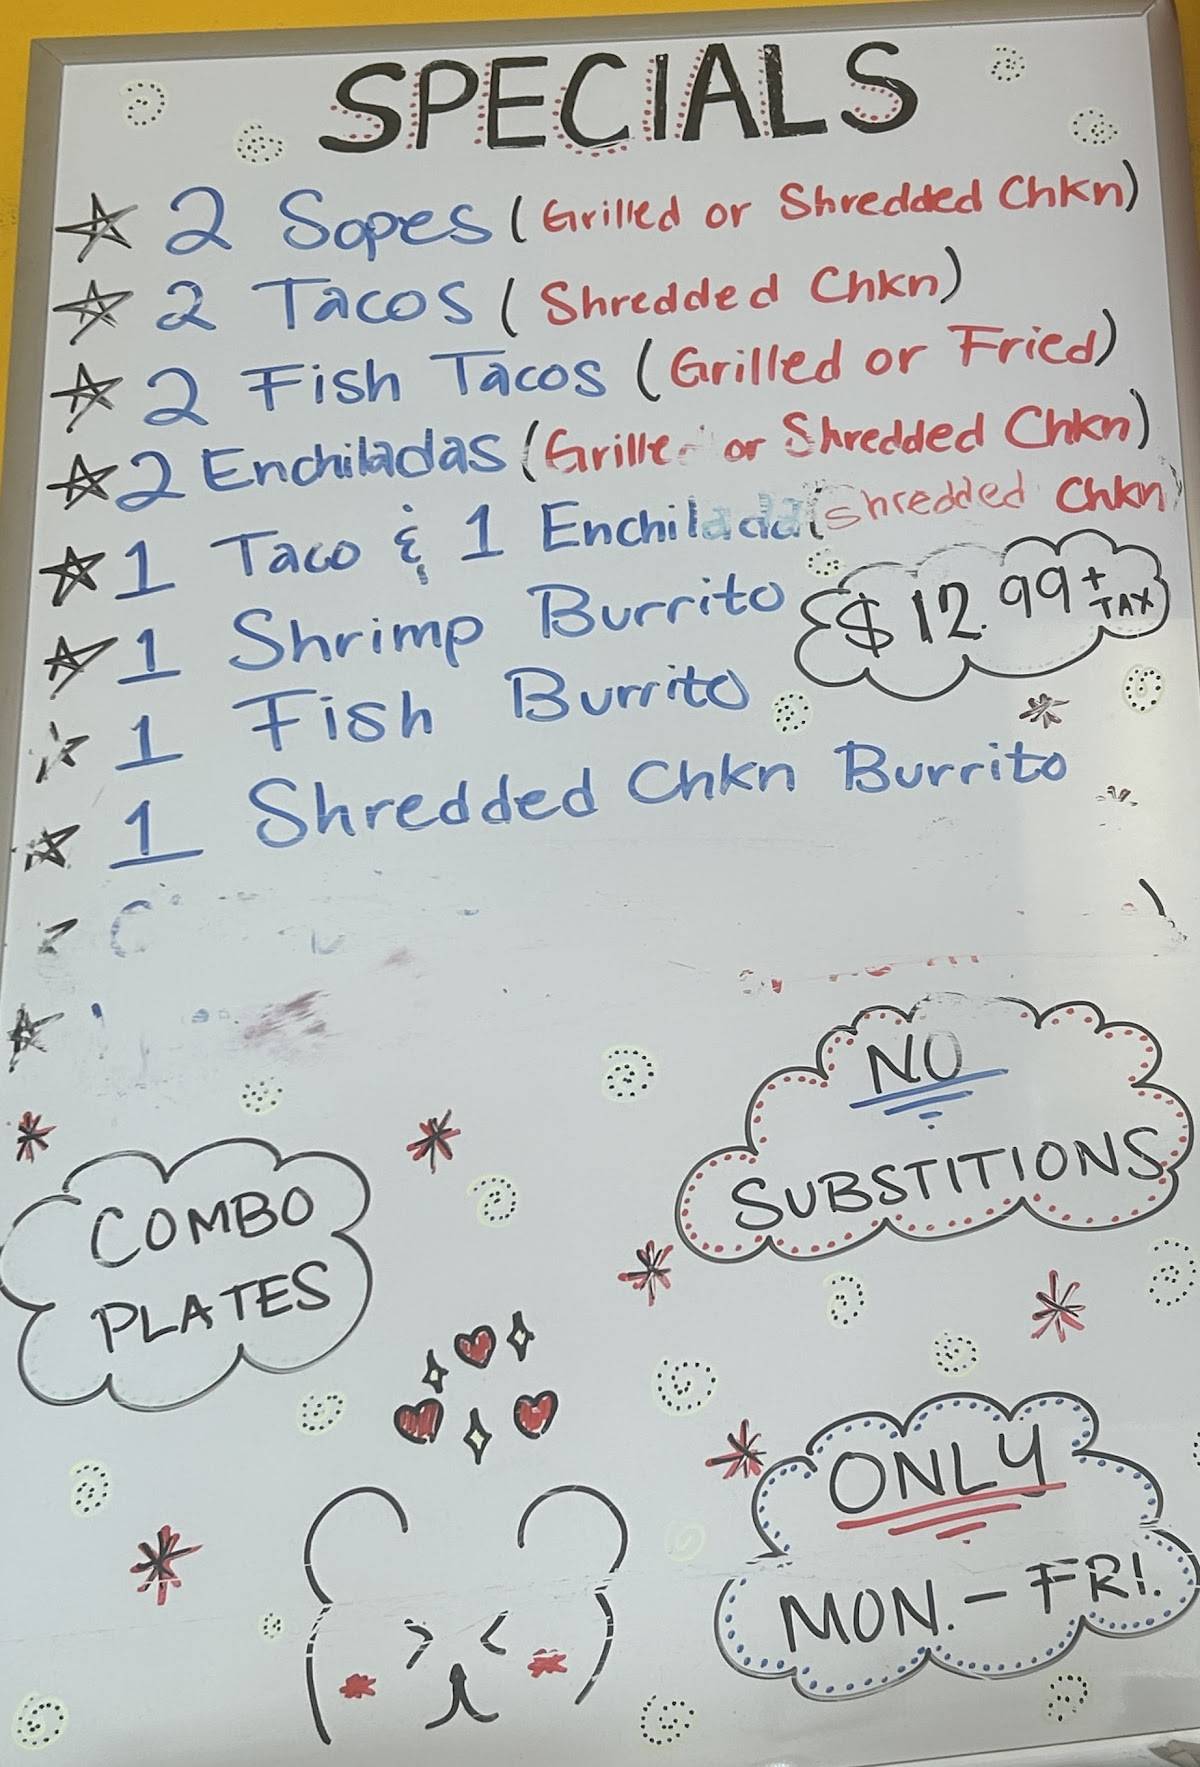 SPECIALS
2 Sopes (Grilled or Shredded Chkn)
2 Tacos (Shredded Chkn)
2 Fish Tacos (Grilled or Fried)
2 Enchiladas (Grilled or Shredded Chkn)
1 Taco & 1 Enchilada (shredded Chkn)
$12.99 + TAX
1 Shrimp Burrito
1 Fish Burrito
1 Shredded Chkn Burrito
NO
SUBSTITIONS
COMBO
PLATES
ONLY
MON. - FRI.